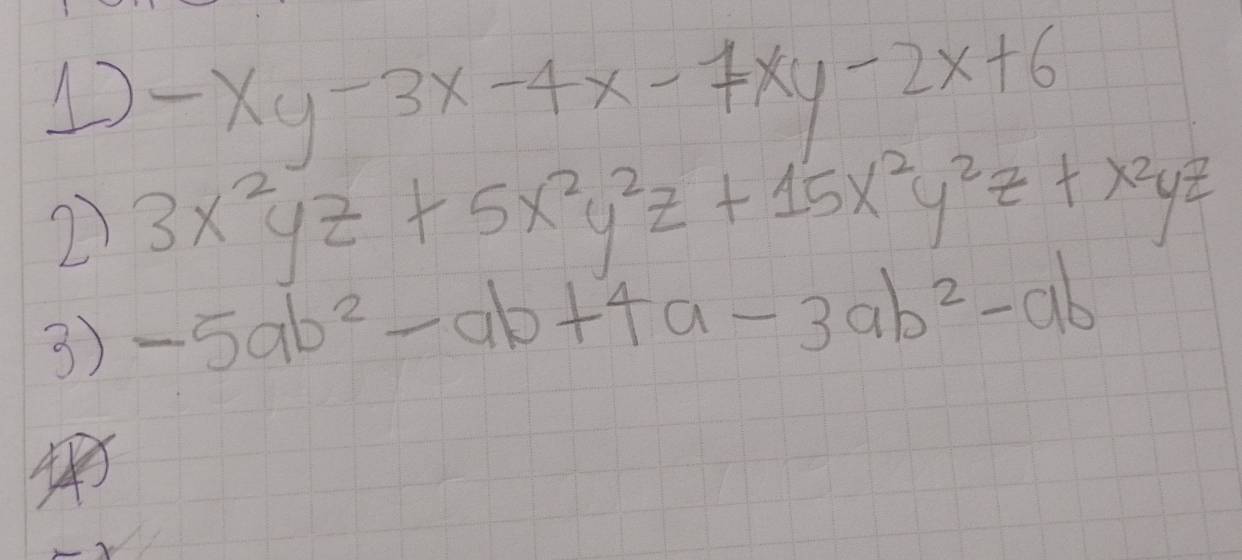 1) -xy - 3x - 4x - 7xy - 2x + 6
2) 3x²yz + 5x²y²z + 15x²y²z + x²yz
3) -5ab² - ab + 4a - 3ab² - ab